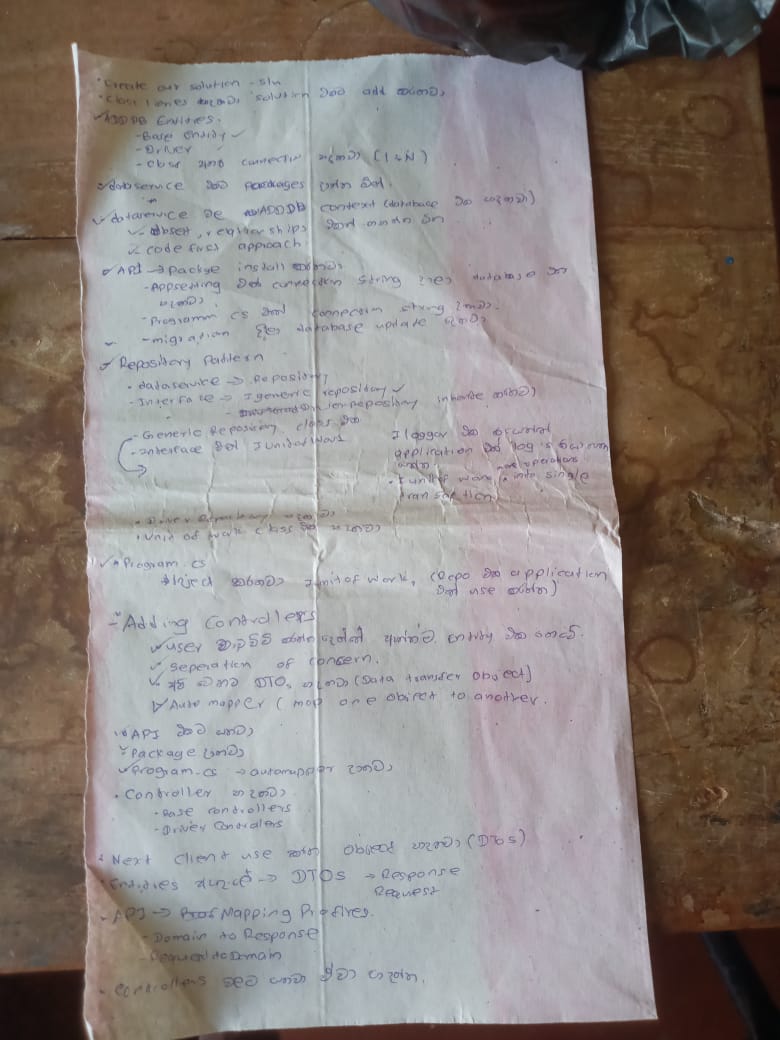 • Create our solution - sln
• Class libries හදනවා solution එකට add කරනවා
✓ ADD DB Entities.
- Base Entity ✓
- Driver ✓
- class අතර connection හදනවා (1 & N)
✓ dataservice එකට packages දාන්න ඕන්.
✓ dataservice එකේ ADD DB context (database එක හදනවා)
✓ dbset, relationships එකේ හදන්න ඕන
✓ code first approach
✓ API → Package install කරනවා
- Appsetting එකේ connection string දාලා database එක
හදනවා
- Programm CS එකේ connection string දානවා.
✓ - migration දාලා database update කරනවා
✓ Repository Pattern
• dataservice → Repository
- Interface → I generic repository ✓
- Driver repository inherite කරනවා
- Generic Repository class එක
- Interface එකේ I unitofwork
I loggar එක
application එකේ log's
more operations
• I unit of work, into single
transaction
• Driver Repository හදනවා
• Unit of work class එක හදනවා
✓ • Program.cs
Inject කරනවා Iunitofwork, (Repo එක application
එකේ use කරන්න)
- Adding Controllers
✓ user entity එක නෙවේ.
✓ Seperation of concern.
✓ අපි වෙනම DTOs හදනවා (Data transfer object)
✓ Auto mapper (map one object to another.
• API එකට යනවා
✓ Package දානවා
✓ Program.cs → automapper දානවා
• Controller හදනවා
• Base controllers
- Driver Controlers
• Next Client use කරන object හදනවා (DTOs)
• Entities ඇතුලේ → DTOS → Response
Request
- API → Mapping Profires.
- Domain to Response
- Request to Domain
- controllers වලට යනවා ඒවා හදන්න.